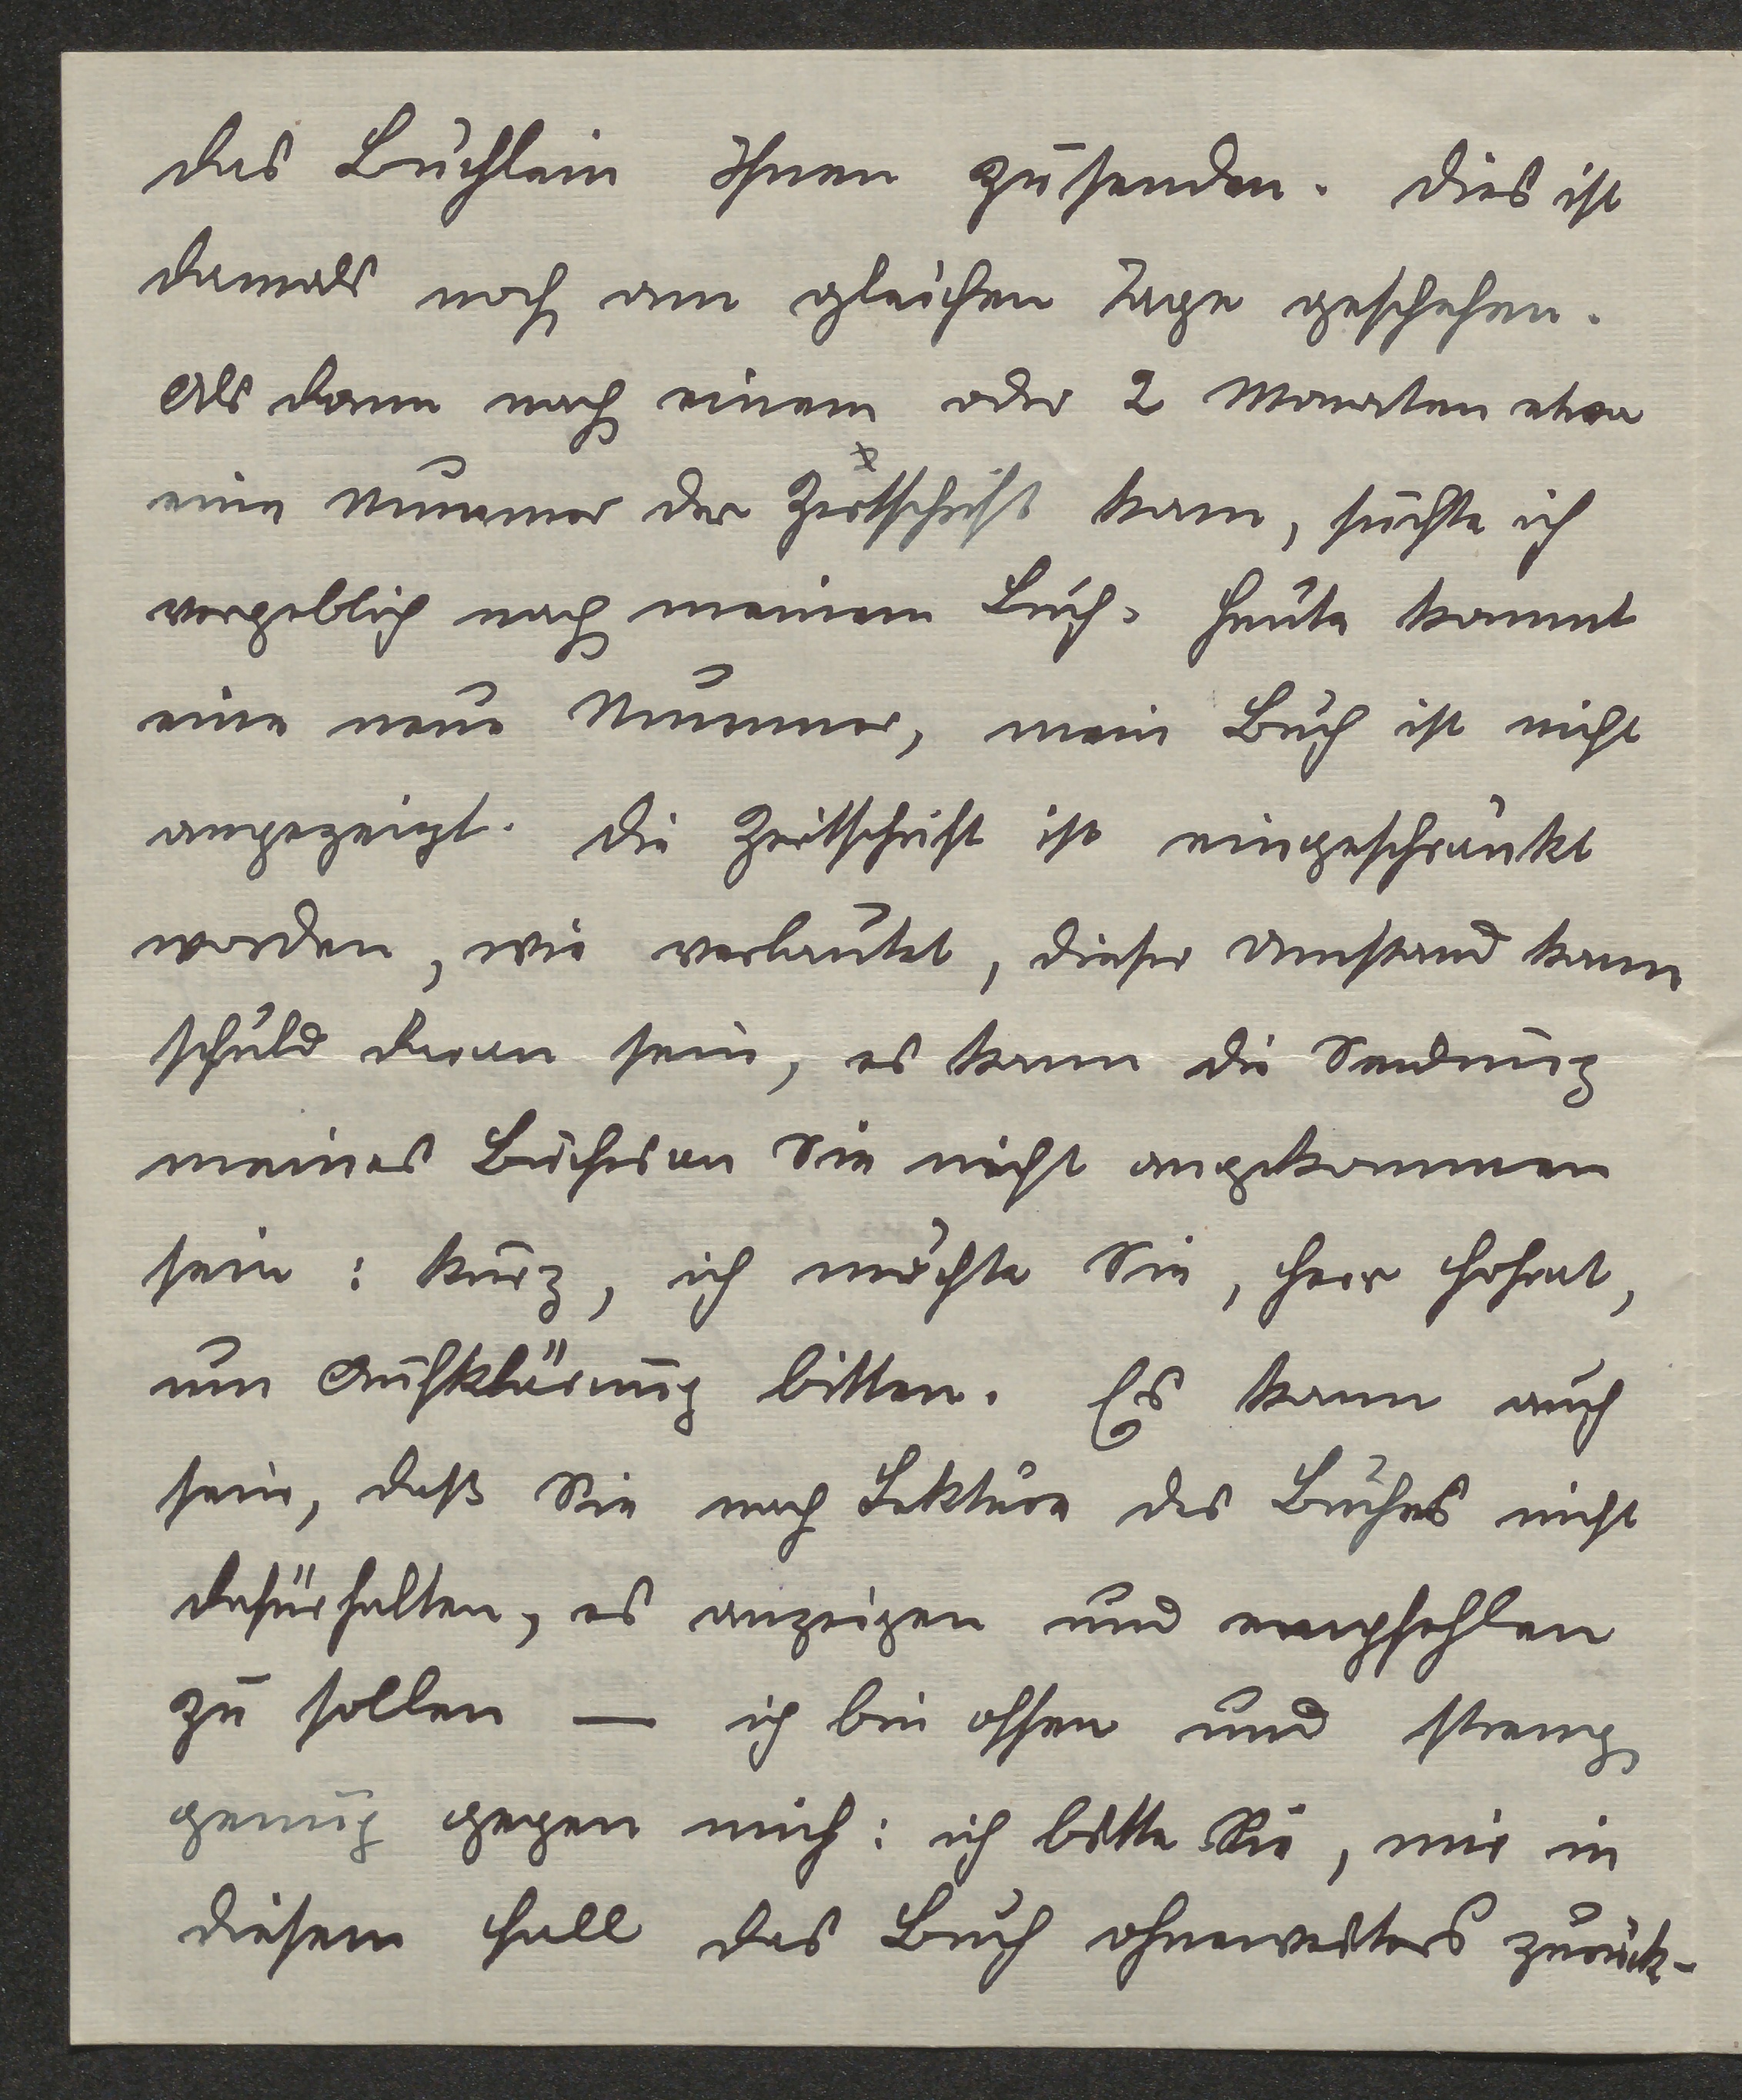 das Büchlein Ihnen zusenden. Dies ist
damals noch am gleichen Tage geschehen.
Als dann nach einem oder 2 Monaten etwa
eine Nummer der Zeitschrift kam, suchte ich
vergeblich nach meinem Buch. Heute kommt
eine neue Nummer, mein Buch ist nicht
angezeigt. Die Zeitschrift ist eingeschränkt
worden, wie verlautet, dieser Umstand kann
schuld daran sein, es kann die Sendung
meines Buches an Sie nicht angekommen
sein: kurz, ich möchte Sie, Herr Hofrat,
um Aufklärung bitten. Es kann auch
sein, daß Sie nach Lektüre des Buches nicht
dafürhalten, es anzeigen und empfehlen
zu sollen — ich bin offen und streng
genug gegen mich: ich bitte Sie, mir in
diesem Fall das Buch ohneweiters zurück-